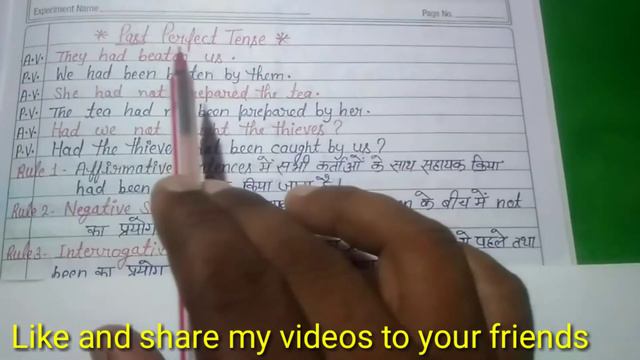 Experiment Name
Page No.
* Past Perfect Tense *
A.V. They had beaten us.
P.V. We had been beaten by them.
A.V. She had not prepared the tea.
P.V. The tea had been prepared by her.
A.V. Had we not the thieves?
P.V. Had the thieves been caught by us?
Rule 1- Affirmative में सभी कर्ताओं के साथ सहायक क्रिया
had been किया जाता है।
Rule 2- Negative के बीच में not
का प्रयोग
Rule 3- Interrogative से पहले तथा
been का प्रयोग
Like and share my videos to your friends